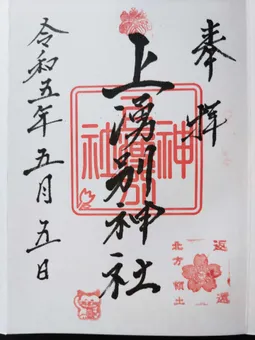 奉拝
上湧別神社
令和五年五月五日
返還
北方領土